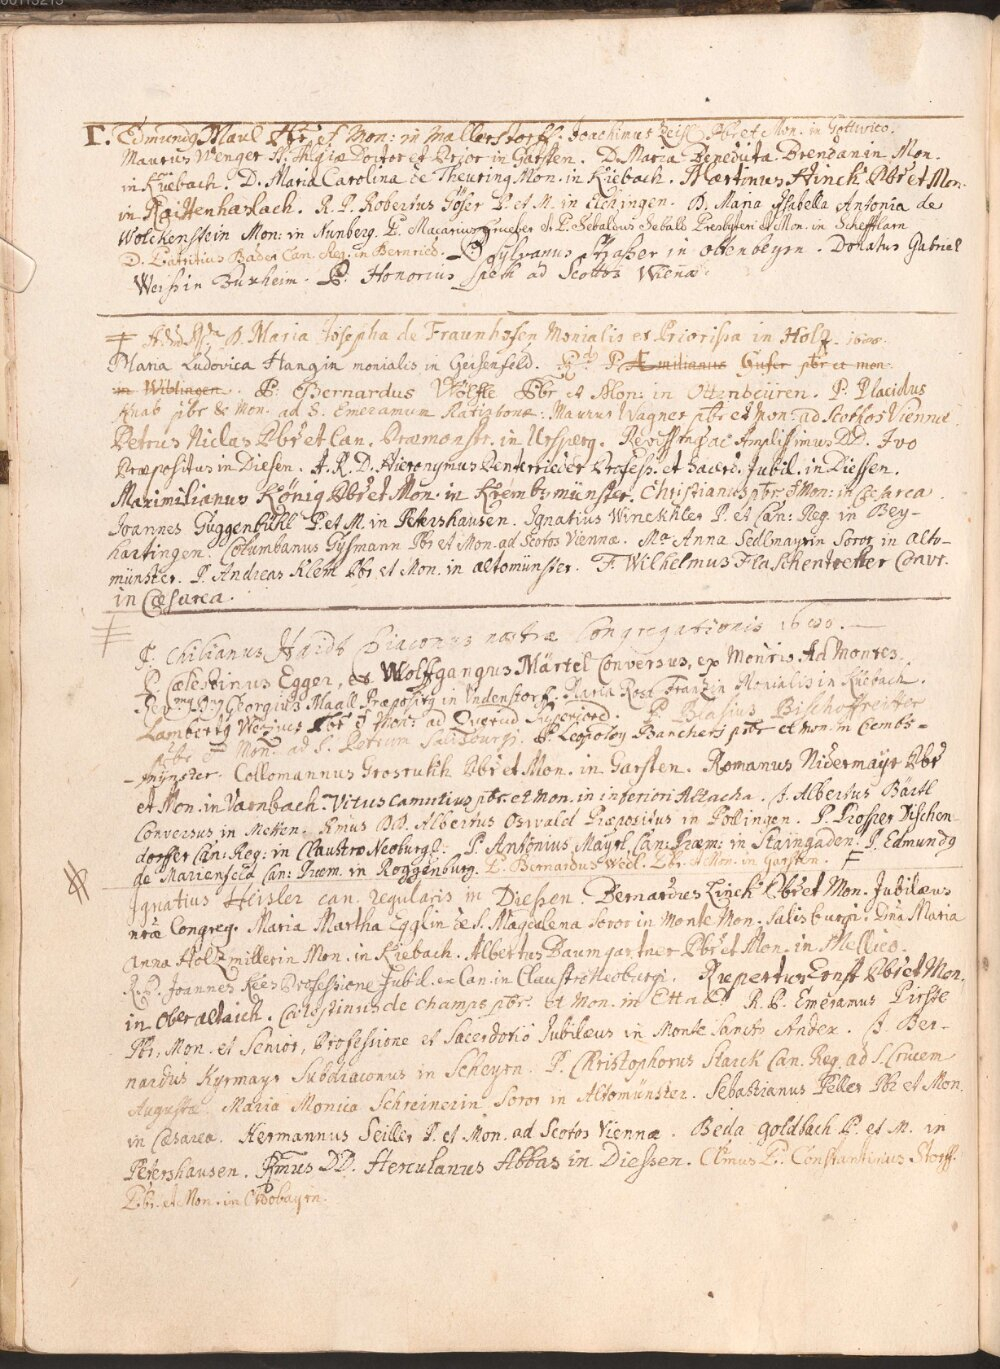 I. Edmundg Maul Pbr et Mon: in Mallerstorff. Joachimus Zeisl Pbr et Mon. in Gottwico.
Maurus Wenger SS. Thlgiæ Doctor et Prior in Garsten. D. Maria Benedicta Brendanin Mon.
in Küebach. D. Maria Carolina de Theuring Mon. in Küebach. Martinus Hinck Pbr et Mon.
in Raittenhaslach. R. P. Robertus P. et M. in Elchingen. D. Maria Ysabella Antonia de
Wolckenstein Mon: in Nunberg. P. Macarius Grueber et P. Sebaldus Sebald Presbyteri et Mon. in Schefftlarn
D. Patritius Bader Can. Reg. in Bernried. P. Sylvanus in Ottenbeyrn. Donatus Gabriel
Weiss in Buxheim. P. Honorius Speth ad Scotos Wienæ
D. Maria Josepha de Fraunhofen Monialis et Priorissa in Holz. 1600.
Maria Ludovica Hangin monialis in Geisenfeld. P. Æmilianus Gufer pbr et mon
in Wiblingen. P. Bernardus Wölfle Pbr et Mon: in Ottenbeüren. P. Placidus
Khab pbr & Mon. ad S. Emeramum Ratisbonæ. Maurus Wagner pbr et Mon: ad Scothos Viennæ
Petrus Niclas Pbr et Can. Præmonstr. in Ursperg. Revssimg ac Amplissimus DD. Ivo
Præpositus in Diesen. A. R. D. Hieronymus Denterrieder Profess. et Sacerd. Jubil. in Diessen.
Maximilianus König Pbr et Mon. in Krembsmünster. Christianus pbr et Mon: in Cæsarea.
Joannes Guggenbühl P. et M. in Petershausen. Ignatius Winckhler P. et Can: Reg. in Bey-
hartingen. Columbanus Gysmann Pbr et Mon. ad Scotos Viennæ. Ma Anna Sedlmayrin Soror in Alto-
münster. P. Andreas Klem Pbr et Mon. in Altomünster. F. Wilhelmus Flaschentreher Convr.
in Cæsarea.
F. Chilianus Haidt Diaconus nostræ Congregationis 1600.
P. Cælestinus Egger, et Wolffgangus Märtel Conversus, ex Monris. Ad Montes.
Georgius Maall Præpositg in Undenstorf. Maria Rosa Frantzin Monialis in Küebach.
Lambertg Pbr et Mon: ad P. Blasius Bischoffreitter
pbr et Mon. ad S. Petrum Salisburgi. P. Leopoldg Banchers pbr et mon. in Cembs-
-mynster. Collomannus Grosrukh Pbr et Mon. in Garsten. Romanus Nidermayr Pbr
et Mon. in Varnbach. Vitus Camutius pbr. et Mon. in inferiori Altacha. F. Albertus Bärtl
Conversus in Metten. Rmus DD. Albertus Oswald Præpositus in Pollingen. P. Prosper Vischen-
dorffer Can: Reg: in Claustro Neoburgi. P. Antonius Mayrl Can: Præm: in Staingaden. P. Edmundg
de Marienfeld Can: Præm. in Roggenburg. P. Bernardus Wedl. Pbr et Mon. in Garsten.
Ignatius Heisler can. regularis in Diessen. Bernardus Linck Pbr et Mon. Jubilæus
nræ Congreg. Maria Martha Egglin de S. Magdalena Soror in Monte Mon. Salisburgi. Dna Maria
Anna Holtzmillerin Mon. in Küebach. Albertus Daumgartner Pbr et Mon. in Mellico.
R. D. Joannes Kees Professione Jubil. ex Can. in Claustro Neoburgi. Ruepertus Ernst Pbr et Mon.
in Oberaltaich. Cælestinus de Champs pbr. et Mon. in Ettal. R. P. Emeranus Pirste
Pbr. Mon. et Senior, Professione et Sacerdotio Jubilæus in Monte Sancto Andex. F. Ber-
nardus Kyrmayr Subdiaconus in Scheyrn. P. Christophorus Starck Can. Reg. ad S. Crucem
Augustæ. Maria Monica Schreinerin Soror in Altomünster. Sebastianus Peller Pbr et Mon.
in Cæsarea. Hermannus Seiller P. et Mon. ad Scotos Viennæ. Beda Goldbach P. et M. in
Petershausen. Rmus DD. Herculanus Abbas in Diessen. P. Constantinus Storff
Pbr. et Mon. in Ottobayrn.